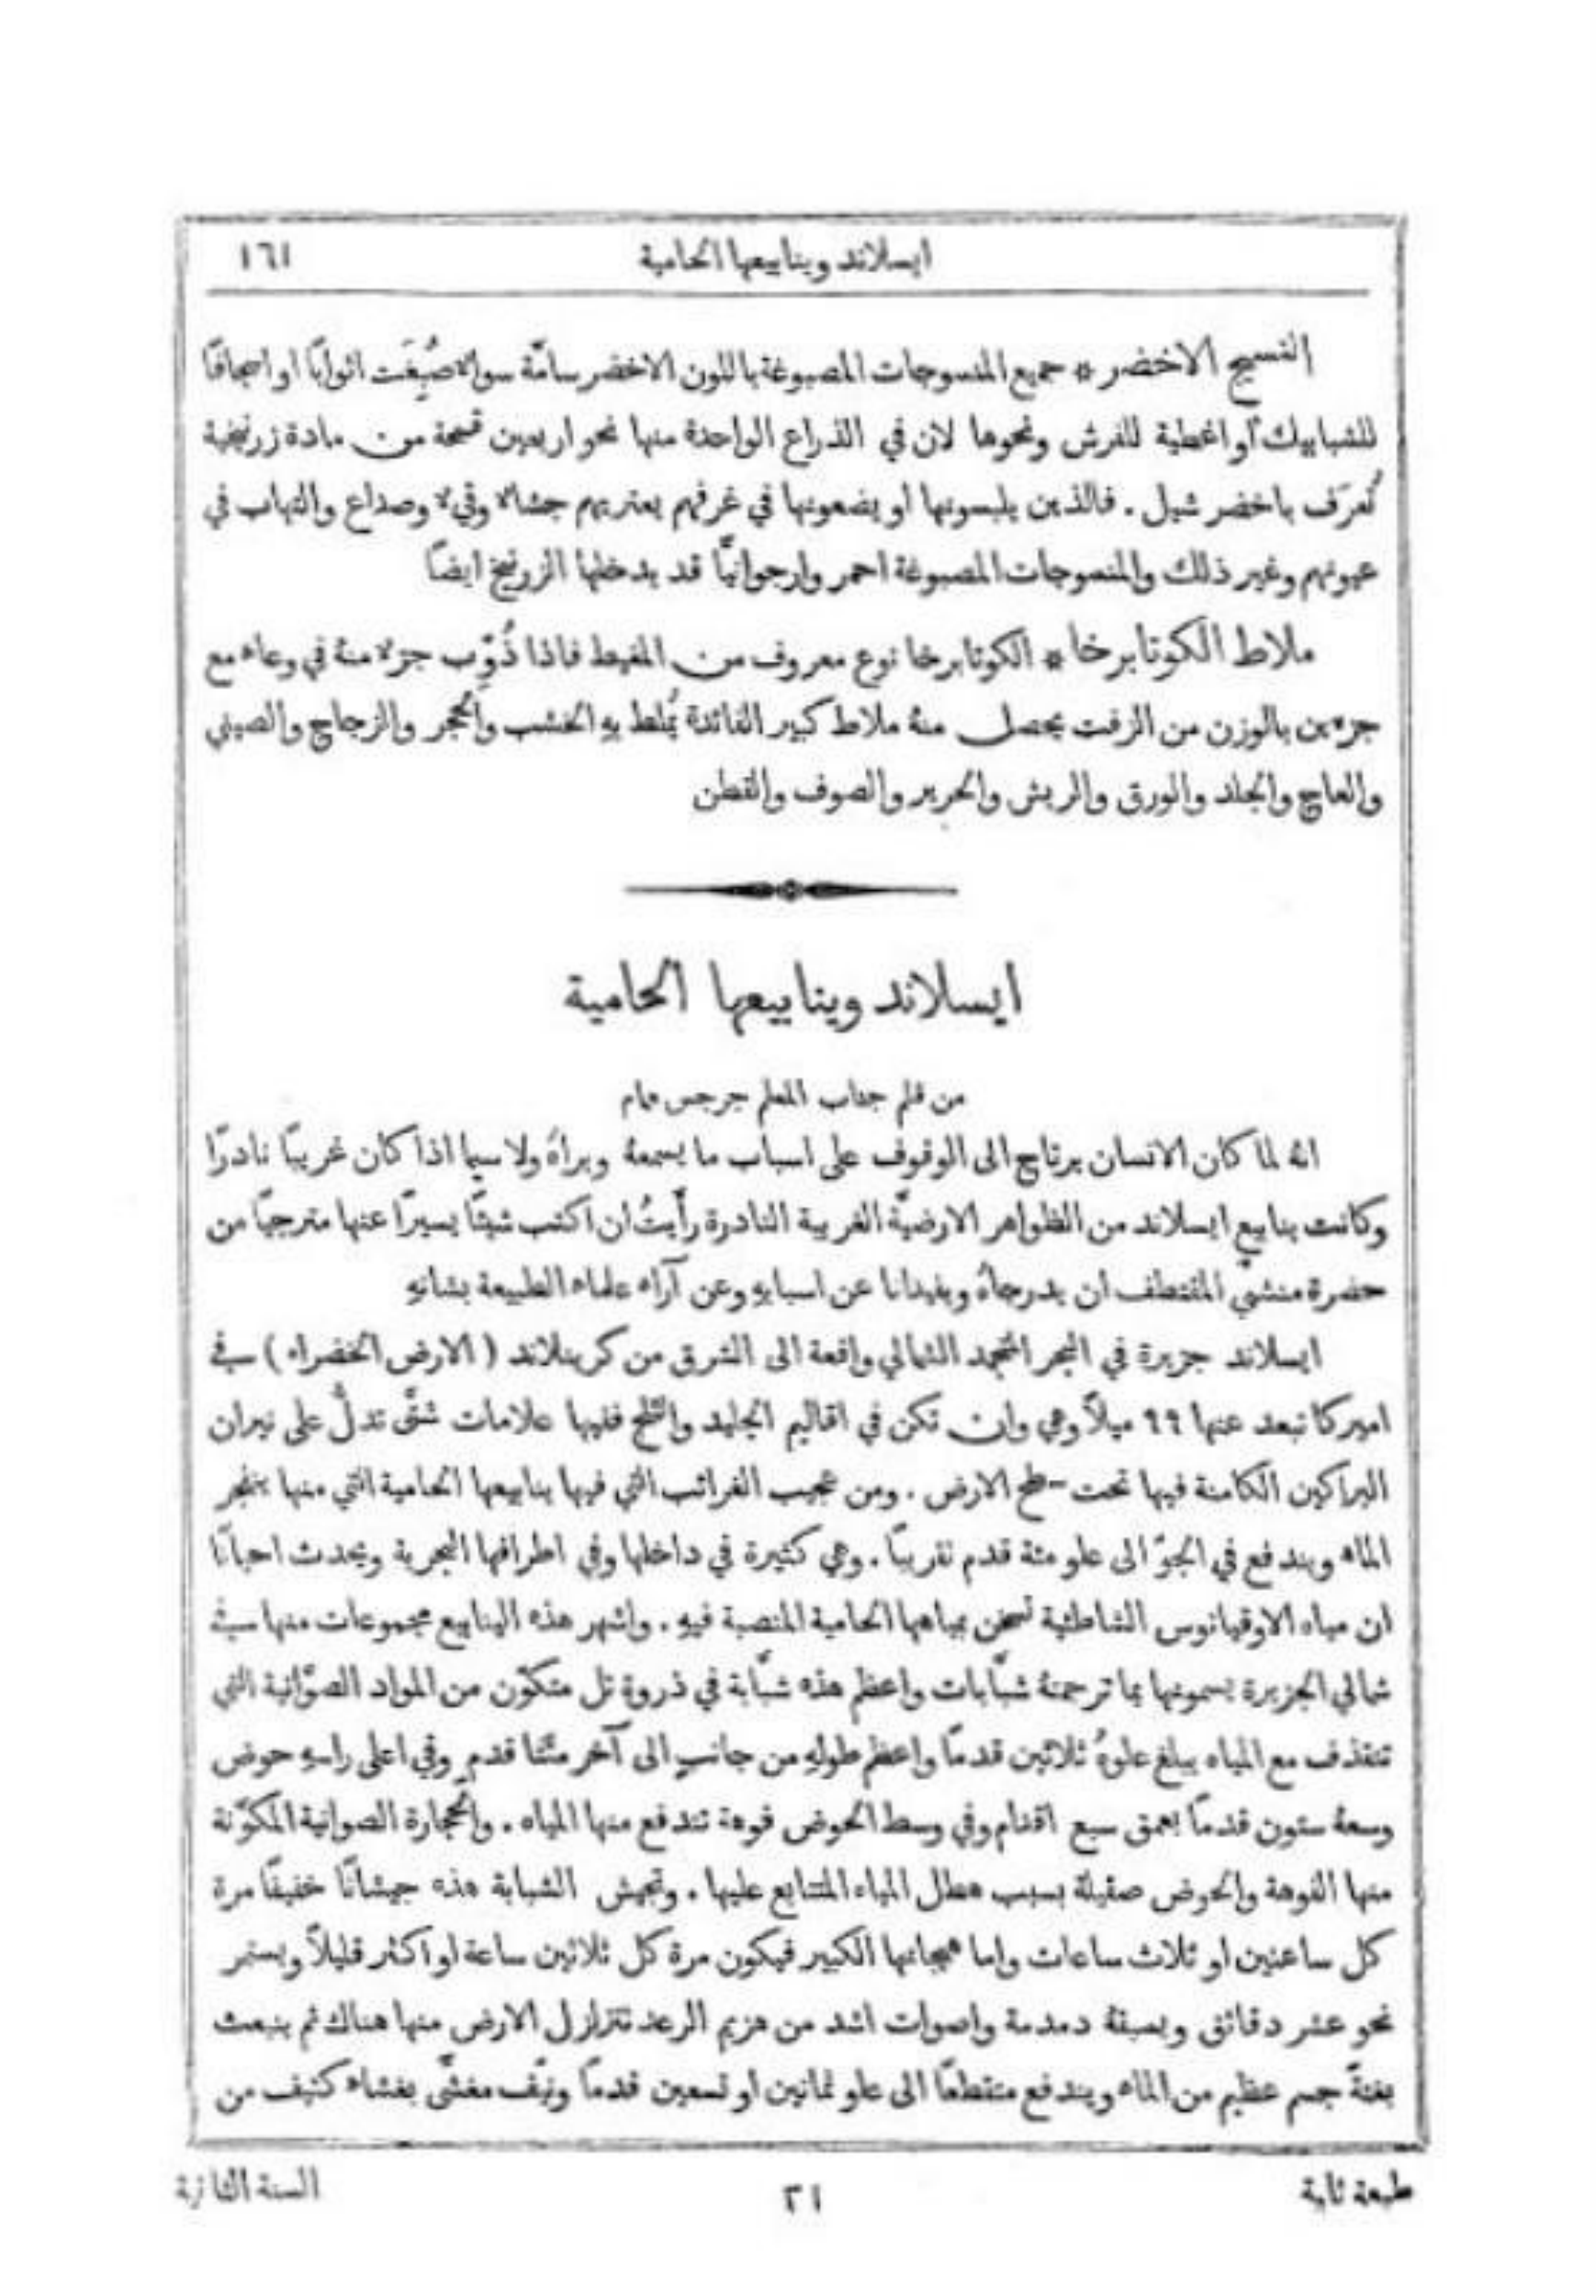 ايسلاند وينابيعها الحامية ١٦١
النسيج الاخضر * جميع المنسوجات المصبوغة باللون الاخضر سامّة سوالا صُبِغَت اثوابًا او اسجافًا
للشبابيك او اغطية للفرش ونحوها لان في الذراع الواحدة منها نحو اربعين قمحة من مادة زرنيخية
تُعرَف باخضر شيل . فالذين يلبسونها او يضعونها في غرفهم يعتريهم جشاء وقيء وصداع والتهاب في
عيونهم وغير ذلك والمنسوجات المصبوغة احمر وارجوانيًّا قد يدخلها الزرنيخ ايضًا
ملاط الكوتابرخا * الكوتابرخا نوع معروف من المغيط فاذا ذُوِّب جزء منهُ في وعاء مع
جزءين بالوزن من الزفت يحصل منهُ ملاط كبير الفائدة يُملط بهِ الخشب والحجر والزجاج والصيني
والعاج والجلد والورق والريش والحرير والصوف والقطن
ايسلاند وينابيعها الحامية
من قلم جناب المعلم جرجس همام
انهُ لما كان الانسان يرتاح الى الوقوف على اسباب ما يسمعهُ ويراهُ ولا سيما اذا كان غريبًا نادرًا
وكانت ينابيع ايسلاند من الظواهر الارضيَّة الغريبة النادرة رأَيتُ ان اكتب شيئًا يسيرًا عنها مترجيًا من
حضرة منشئَي المقتطف ان يدرجاهُ ويفيدانا عن اسبابهِ وعن آراء علماء الطبيعة بشانهِ
ايسلاند جزيرة في البحر المتجمد الشمالي واقعة الى الشرق من كرينلاند ( الارض الخضراء ) في
اميركا تبعد عنها ٩٩ ميلاً وهي وان تكن في اقاليم الجليد والثلج ففيها علامات شتَّى تدلُّ على نيران
البراكين الكامنة فيها تحت سطح الارض . ومن عجيب الغرائب التي فيها ينابيعها الحامية التي منها ينفجر
الماء ويندفع في الجوّ الى علو مئة قدم تقريبًا . وهي كثيرة في داخلها وفي اطرافها البحرية ويحدث احيانًا
ان مياه الاوقيانوس الشاطئية تسخن بمياهها الحامية المنصبة فيهِ . واشهر هذه الينابيع مجموعات منها في
شمالي الجزيرة يسمونها بما ترجمتهُ شبَّابات واعظم هذه شبَّابة في ذروة تل متكوّن من المواد الصوّانية التي
تنقذف مع المياه يبلغ علوهُ ثلاثين قدمًا واعظم طولهِ من جانبٍ الى آخر مئتا قدم وفي اعلى راسهِ حوض
وسعهُ ستون قدمًا بعمق سبع اقدام وفي وسط الحوض فوهة تندفع منها المياه . والحجارة الصوانية المكوّنة
منها الفوهة والحوض صقيلة بسبب هطل المياه المتتابع عليها . وتجيش الشبابة هذه جيشانًا خفيفًا مرة
كل ساعتين او ثلاث ساعات واما هيجانها الكبير فيكون مرة كل ثلاثين ساعة او اكثر قليلاً ويستمر
نحو عشر دقائق ويسبقهُ دمدمة واصوات اشد من هزيم الرعد تتزلزل الارض منها هناك ثم ينبعث
بغتةً جسم عظيم من الماء ويندفع متقطعًا الى علو ثمانين او تسعين قدمًا ونيّف مغشًّى بغشاء كثيف من
طبعة ثانية ٢١ السنة الثانية